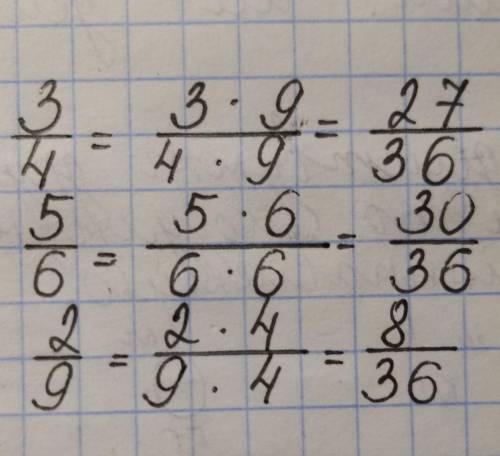 3/4 = 3 · 9 / 4 · 9 = 27/36
5/6 = 5 · 6 / 6 · 6 = 30/36
2/9 = 2 · 4 / 9 · 4 = 8/36